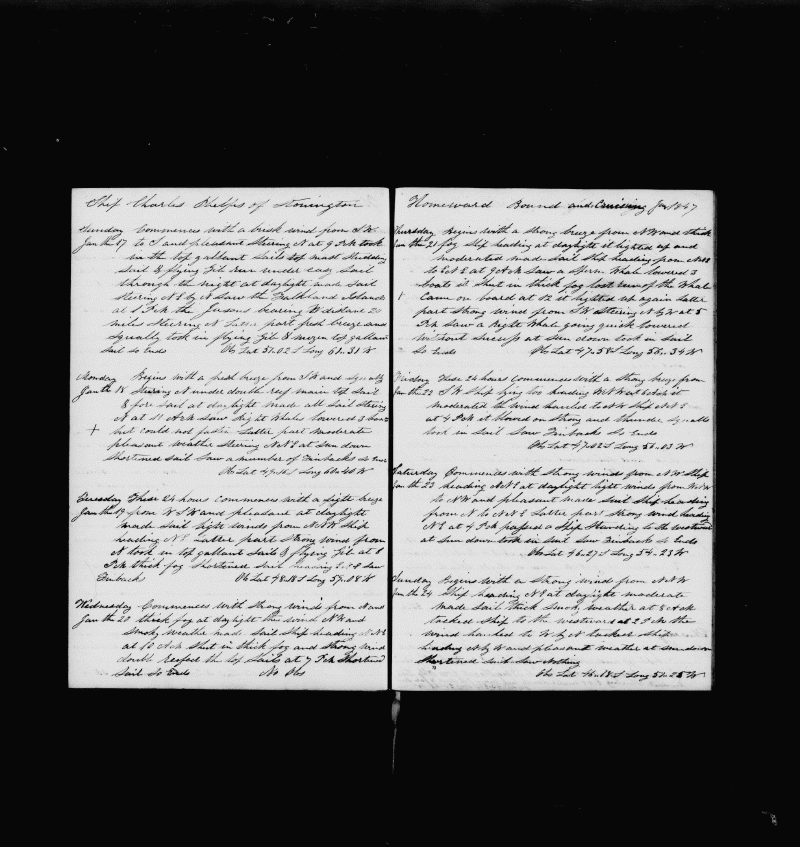 Ship Charles Phelps of Stonington
Sunday Commences with a brisk wind from S W
Jan the 17 to S and pleasant Steering N at 9 P.M took
in the top gallant Sails top mast Studding
Sail & flying Jib run under easy Sail
through the night at daylight made Sail
Steering N E by N Saw the Falkland Islands
at 1 P.M the Jasons bearing W distance 20
miles Steering N Latter part fresh breeze and
Squally took in flying Jib & mizen top gallant
Sail So Ends Obs Lat 51..02 S Long 61..31 W
Monday Begins with a fresh breeze from S W and Squally
Jan the 18 Steering N under double reef main top Sail
& fore Sail at daylight made all Sail Steering
N at 11 A.M Saw Right Whales lowered 3 boats
+ but could not fasten Latter part moderate
pleasant weather Steering N N E at Sun down
Shortened Sail Saw a number of Finbacks So Ends
Obs Lat 49..16 S Long 60..40 W
Tuesday These 24 hours commences with a light breeze
Jan the 19 from W S W and pleasant at daylight
made Sail light winds from N N W Ship
heading N E Latter part Strong wind from
N took in top gallant Sails & flying Jib at 1
P.M thick fog Shortened Sail heaving Saw
Finbacks Obs Lat 48..18 S Long 57..08 W
Wednesday Commences with Strong winds from N and
Jan the 20 thick fog at daylight the wind N W and
Smoky weather made Sail Ship heading N N E
at 10 A.M Shut in thick fog and Strong wind
double reefed the top Sails at 7 P.M Shortened
Sail So Ends No Obs
Homeward Bound and Cruising Jan 1847
Thursday Begins with a Strong breeze from N W and thick
Jan the 21 fog Ship heading at daylight it lighted up and
moderated made Sail Ship heading from N N E
to E N E at 9 A.M Saw a Sperm Whale lowered 3
boats it Shut in thick fog lost run of the Whale
+ Came on board at 12 it lighted up again Latter
part Strong wind from S W Steering N by W at 5
P.M Saw a Right Whale going quick lowered
without Success at Sun down took in Sail
So Ends Obs Lat 47..58 S Long 56..34 W
Friday These 24 hours commences with a Strong breeze from
Jan the 22 S W Ship lying too heading W N W at 6 A.M it
moderated the wind hauled to N W Ship N N E
at 4 P.M it blowed on Strong and thunder Squalls
took in Sail Saw Finbacks So Ends
Obs Lat 47..02 S Long 55..03 W
Saturday Commences with Strong winds from N W Ship
Jan the 23 heading N N E at daylight light winds from W N W
to N W and pleasant made Sail Ship heading
from N to N N E Latter part Strong wind heading
N E at 4 P.M passed a Ship Standing to the westward
at Sun down took in Sail Saw Finbacks So Ends
Obs Lat 46..27 S Long 54..23 W
Sunday Begins with a Strong wind from N N W
Jan the 24 Ship heading N E at daylight moderate
made Sail thick Smoky weather at 8 A.M
tacked Ship to the westward at 2 P.M the
wind hauled to W by N tacked Ship
heading N by W and pleasant weather at Sundown
Shortened Sail Saw Nothing
Obs Lat 46..18 S Long 53..25 W